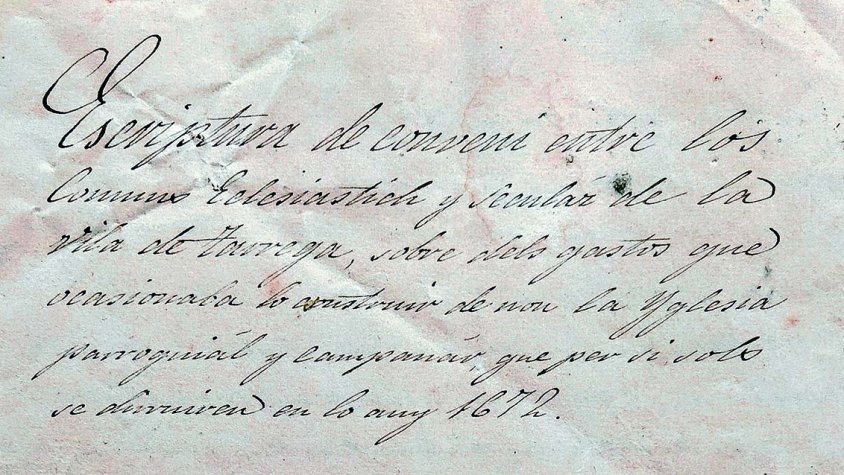 Escriptura de conveni entre los
Comuns Eclesiastich y secular de la
vila de Tarrega, sobre dels gastos que
ocasionaba lo construir de nou la Yglesia
parroquiál y campanár, que per si sols
se durruiren en lo any 1672.